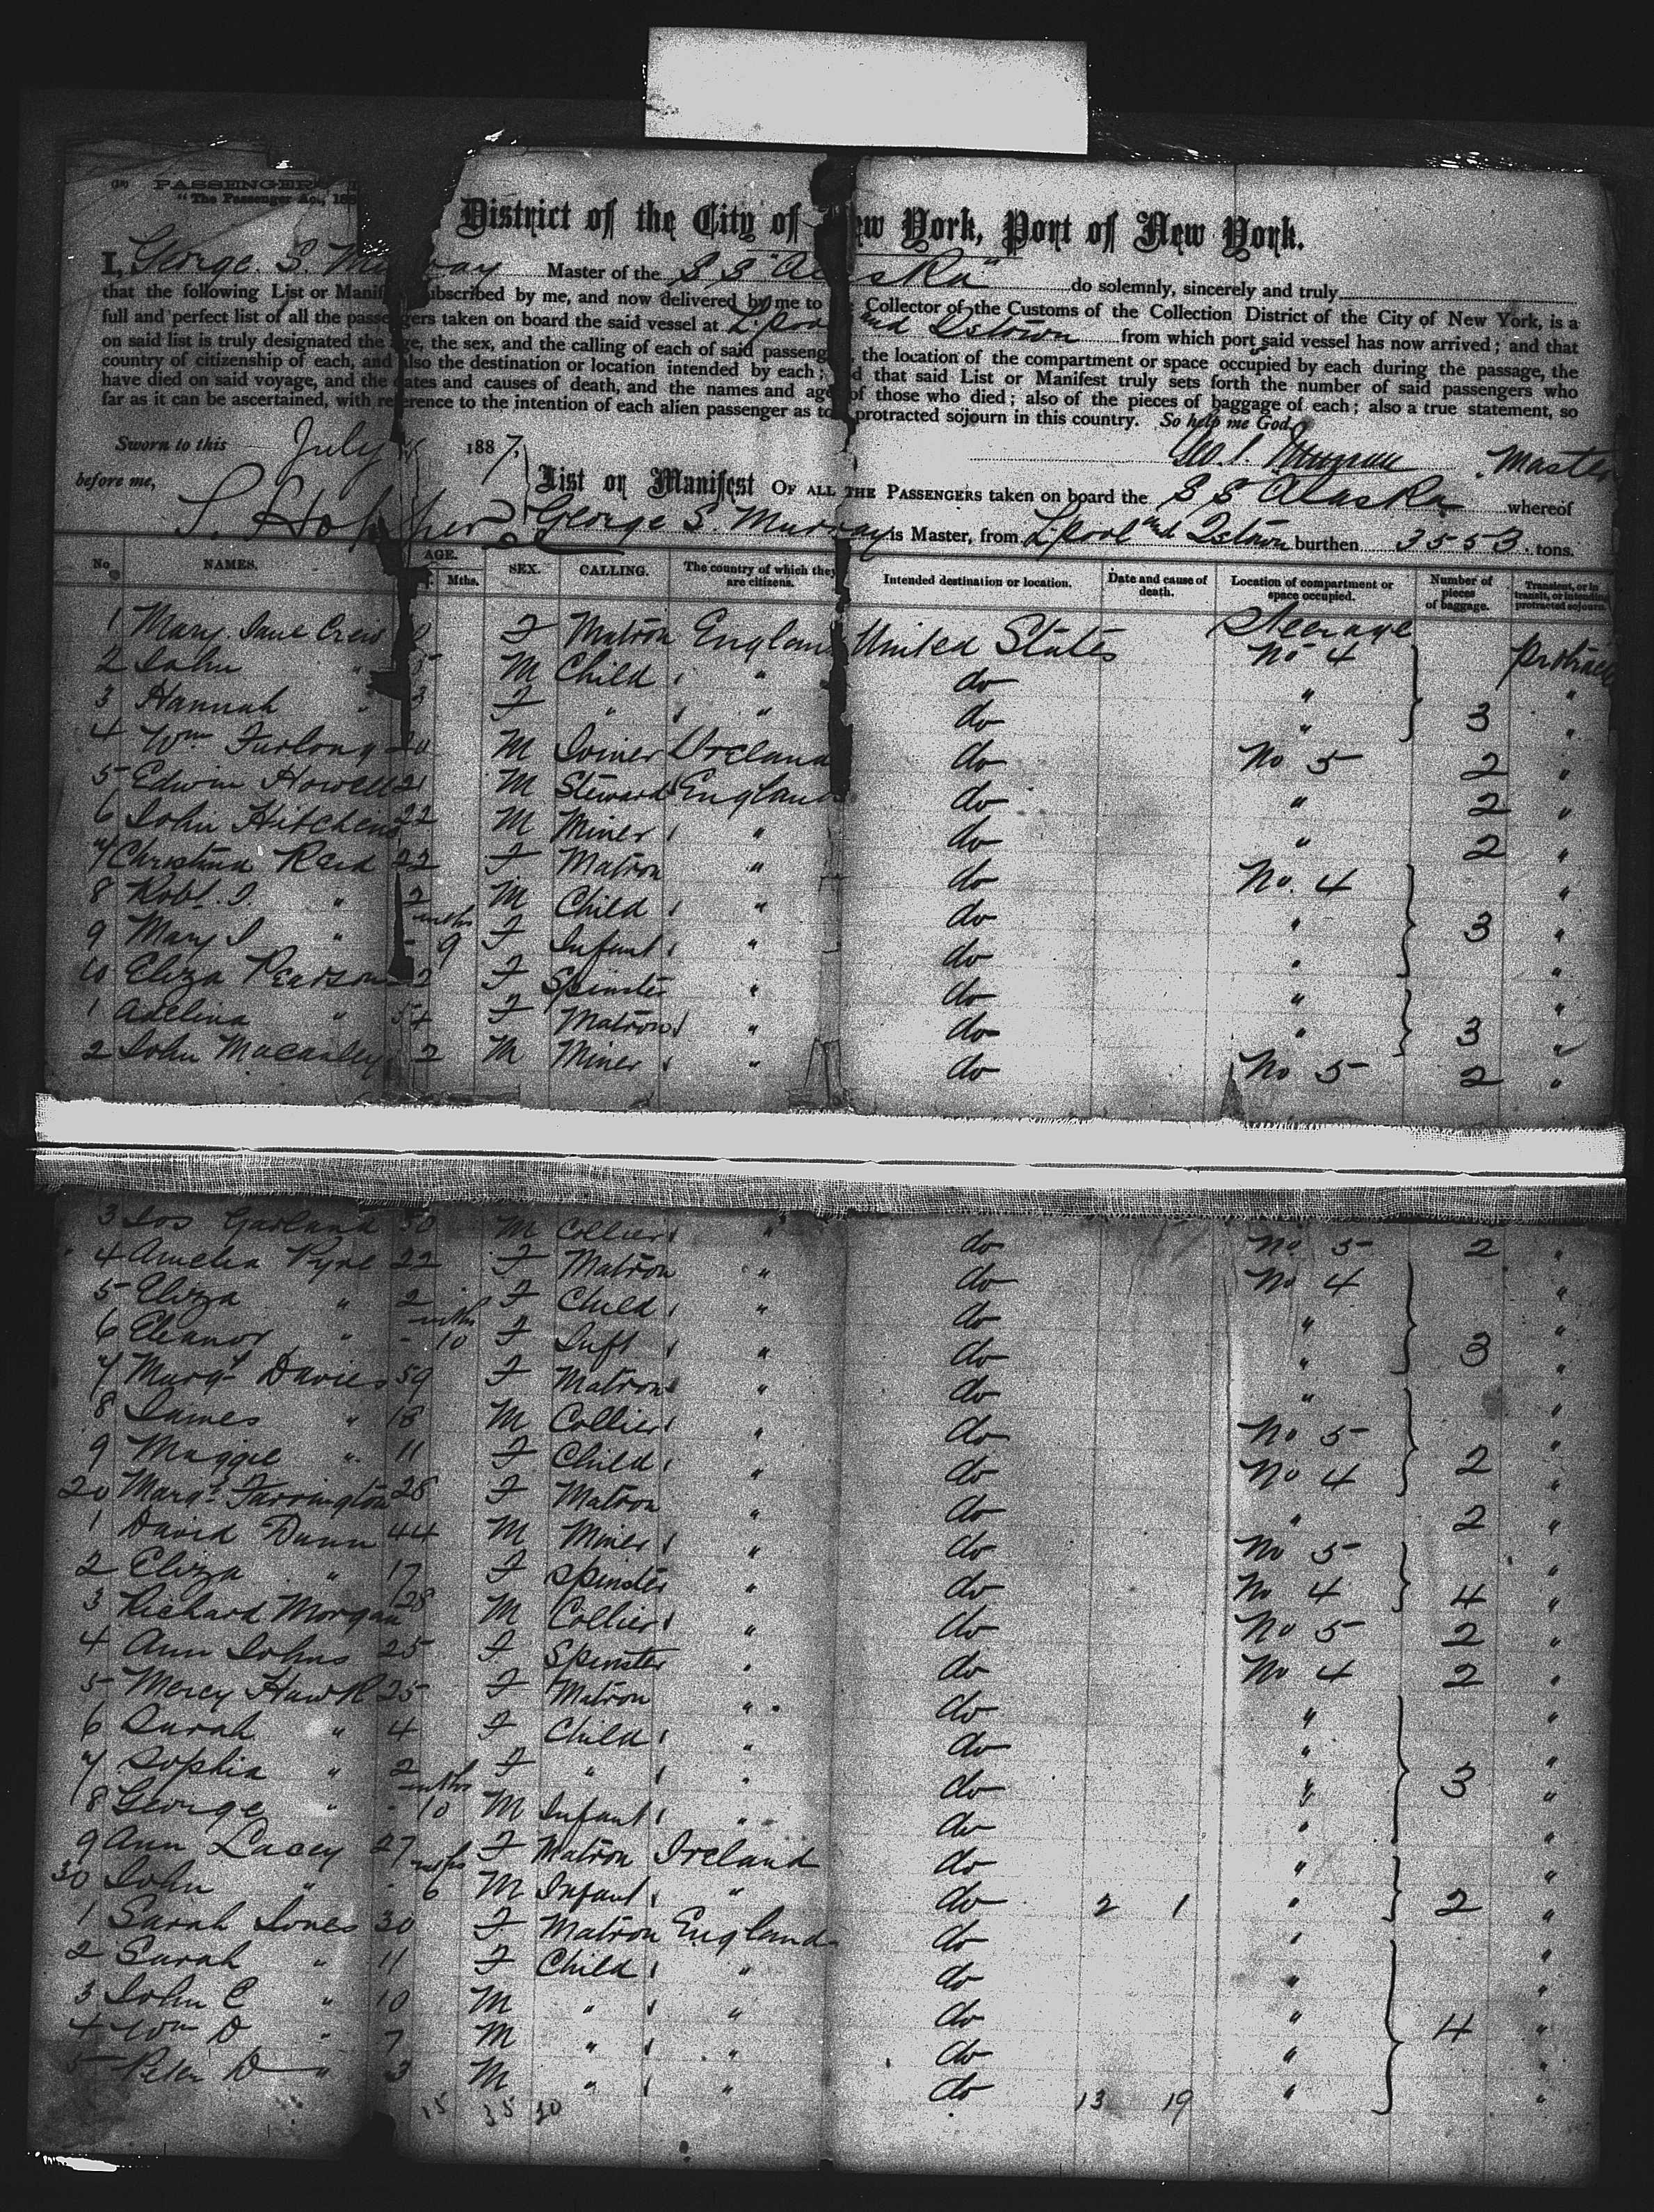 PASSENGER
"The Passenger Act, 188
District of the City of New York, Port of New York.
I, George. S. Murray Master of the S S "Alaska" do solemnly, sincerely and truly
that the following List or Manif ubscribed by me, and now delivered by me to Collector of the Customs of the Collection District of the City of New York, is a
full and perfect list of all the passengers taken on board the said vessel at L'pool and Qstown from which port said vessel has now arrived; and that
on said list is truly designated the age, the sex, and the calling of each of said passeng , the location of the compartment or space occupied by each during the passage, the
country of citizenship of each, and also the destination or location intended by each; d that said List or Manifest truly sets forth the number of said passengers who
have died on said voyage, and the dates and causes of death, and the names and age of those who died; also of the pieces of baggage of each; also a true statement, so
far as it can be ascertained, with reference to the intention of each alien passenger as to protracted sojourn in this country. So help me God.
Sworn to this July 1887, Geo. S. Murray Master
before me,
List or Manifest OF ALL THE PASSENGERS taken on board the S S Alaska whereof
George S. Murray is Master, from L'pool and Qstown burthen 3553 tons.
No. NAMES. AGE. Mths. SEX. CALLING. The country of which they are citizens. Intended destination or location. Date and cause of death. Location of compartment or space occupied. Number of pieces of baggage. Transient, or in transit, or intending protracted sojourn.
1 Mary Jane Crew F Matron England United States Steerage No 4
2 John " M Child " do " "
3 Hannah " 3 F " " do " 3 "
4 Wm Furlong 20 M Joiner Ireland do No 5 2 "
5 Edwin Howell 21 M Steward England do " 2 "
6 John Hitchens 22 M Miner " do " 2 "
7 Christina Reid 22 F Matron " do No. 4 "
8 Robt. J. " 2 M Child " do " 3 "
9 Mary J " - mths 9 F Infant " do " "
10 Eliza Pearson 2 F Spinster " do " "
1 Adelina " 54 F Matron " do " 3 "
2 John Macauley 2 M Miner " do No 5 2 "
3 Jos Garland 50 M Collier " do No 5 2 "
4 Amelia Pyne 22 F Matron " do No 4 "
5 Eliza " 2 F Child " do " "
6 Eleanor " - mths 10 F Inft " do " 3 "
7 Margt Davies 59 F Matron " do " "
8 James " 18 M Collier " do No 5 "
9 Maggie " 11 F Child " do No 4 2 "
20 Margt Farrington 28 F Matron " do " 2 "
1 David Dunn 44 M Miner " do No 5 "
2 Eliza " 17 F Spinster " do No 4 4 "
3 Richard Morgan 28 M Collier " do No 5 2 "
4 Ann Johns 25 F Spinster " do No 4 2 "
5 Mercy Hawk 25 F Matron " do " "
6 Sarah " 4 F Child " do " "
7 Sophia " 2 F " " do " 3 "
8 George " - mths 10 M Infant " do " "
9 Ann Lacey 27 F Matron Ireland do " "
30 John " - mths 6 M Infant " do 2 1 " 2 "
1 Sarah Jones 30 F Matron England do " "
2 Sarah " 11 F Child " do " "
3 John C " 10 M " " do " "
4 Wm D " 7 M " " do " 4 "
5 Peter D " 3 M " " do " "
13 19